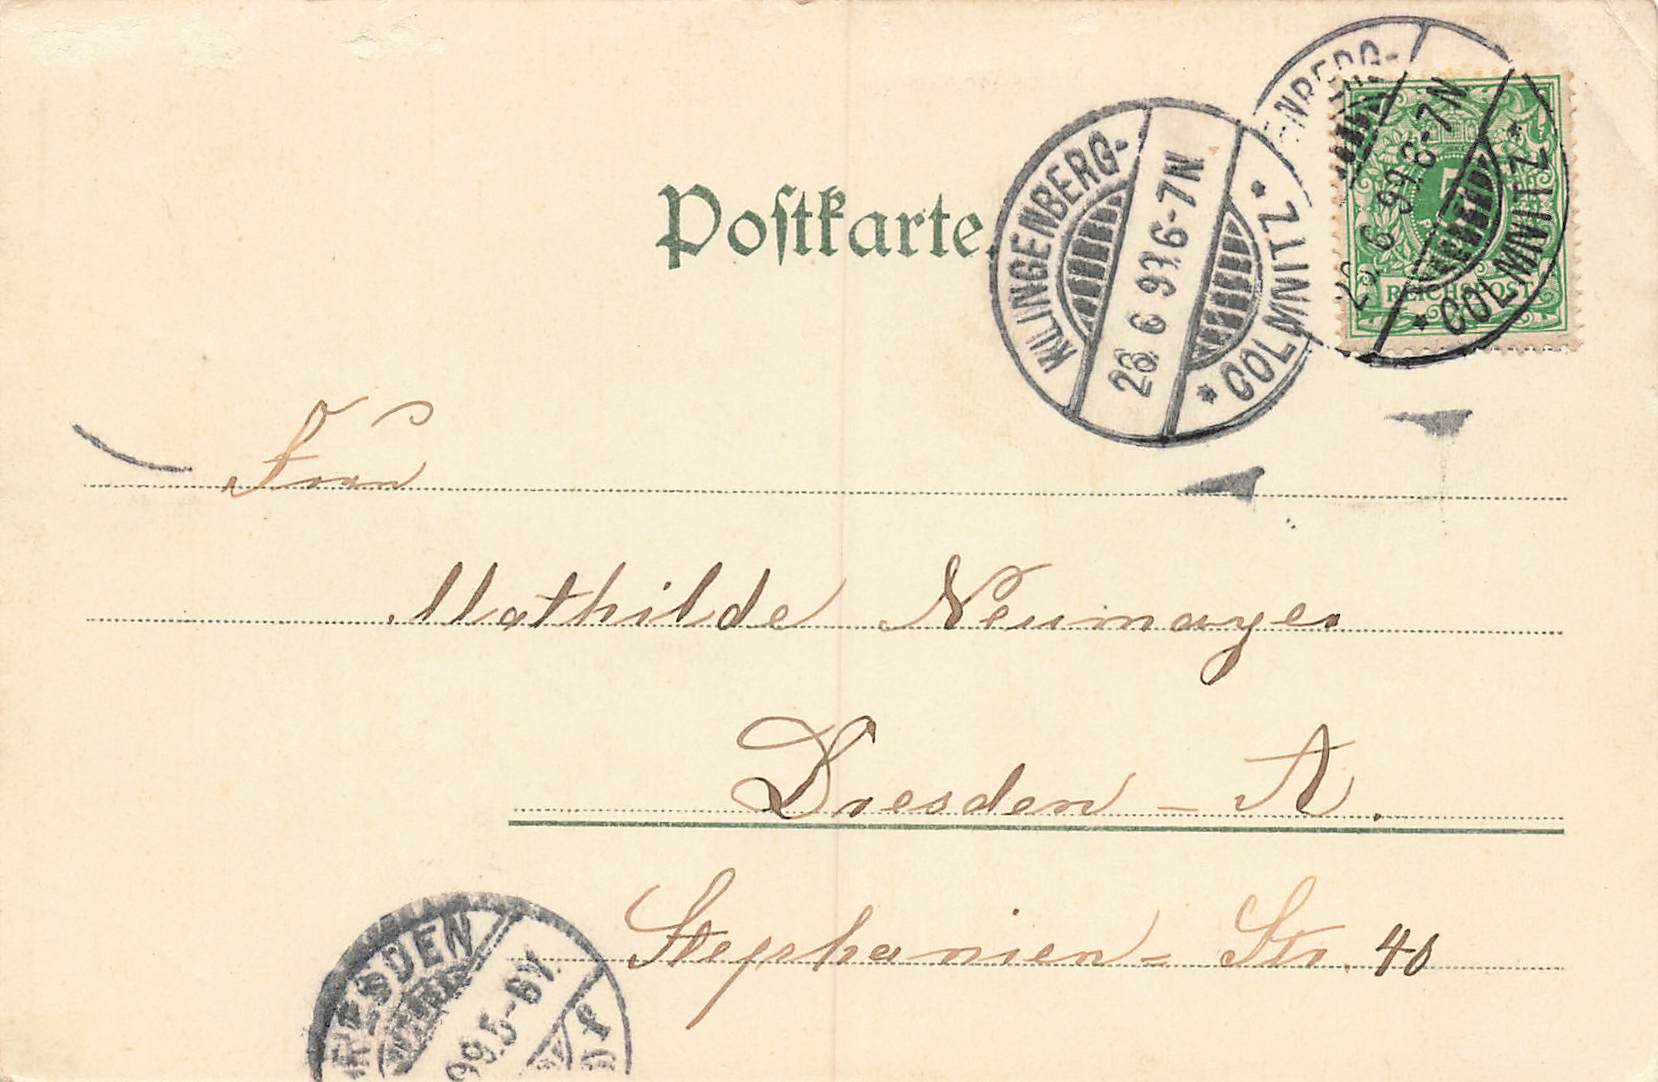 Postkarte
KLINGENBERG-
26. 6 99. 6-7N
* COLMNITZ *
ENBERG-
26. 6 99. 6-7N
* COLMNITZ *
5
REICHSPOST
Frau
Mathilde Neumayer
Dresden - A.
Stephanien - Str. 40
DRESDEN
99. 5-6V.